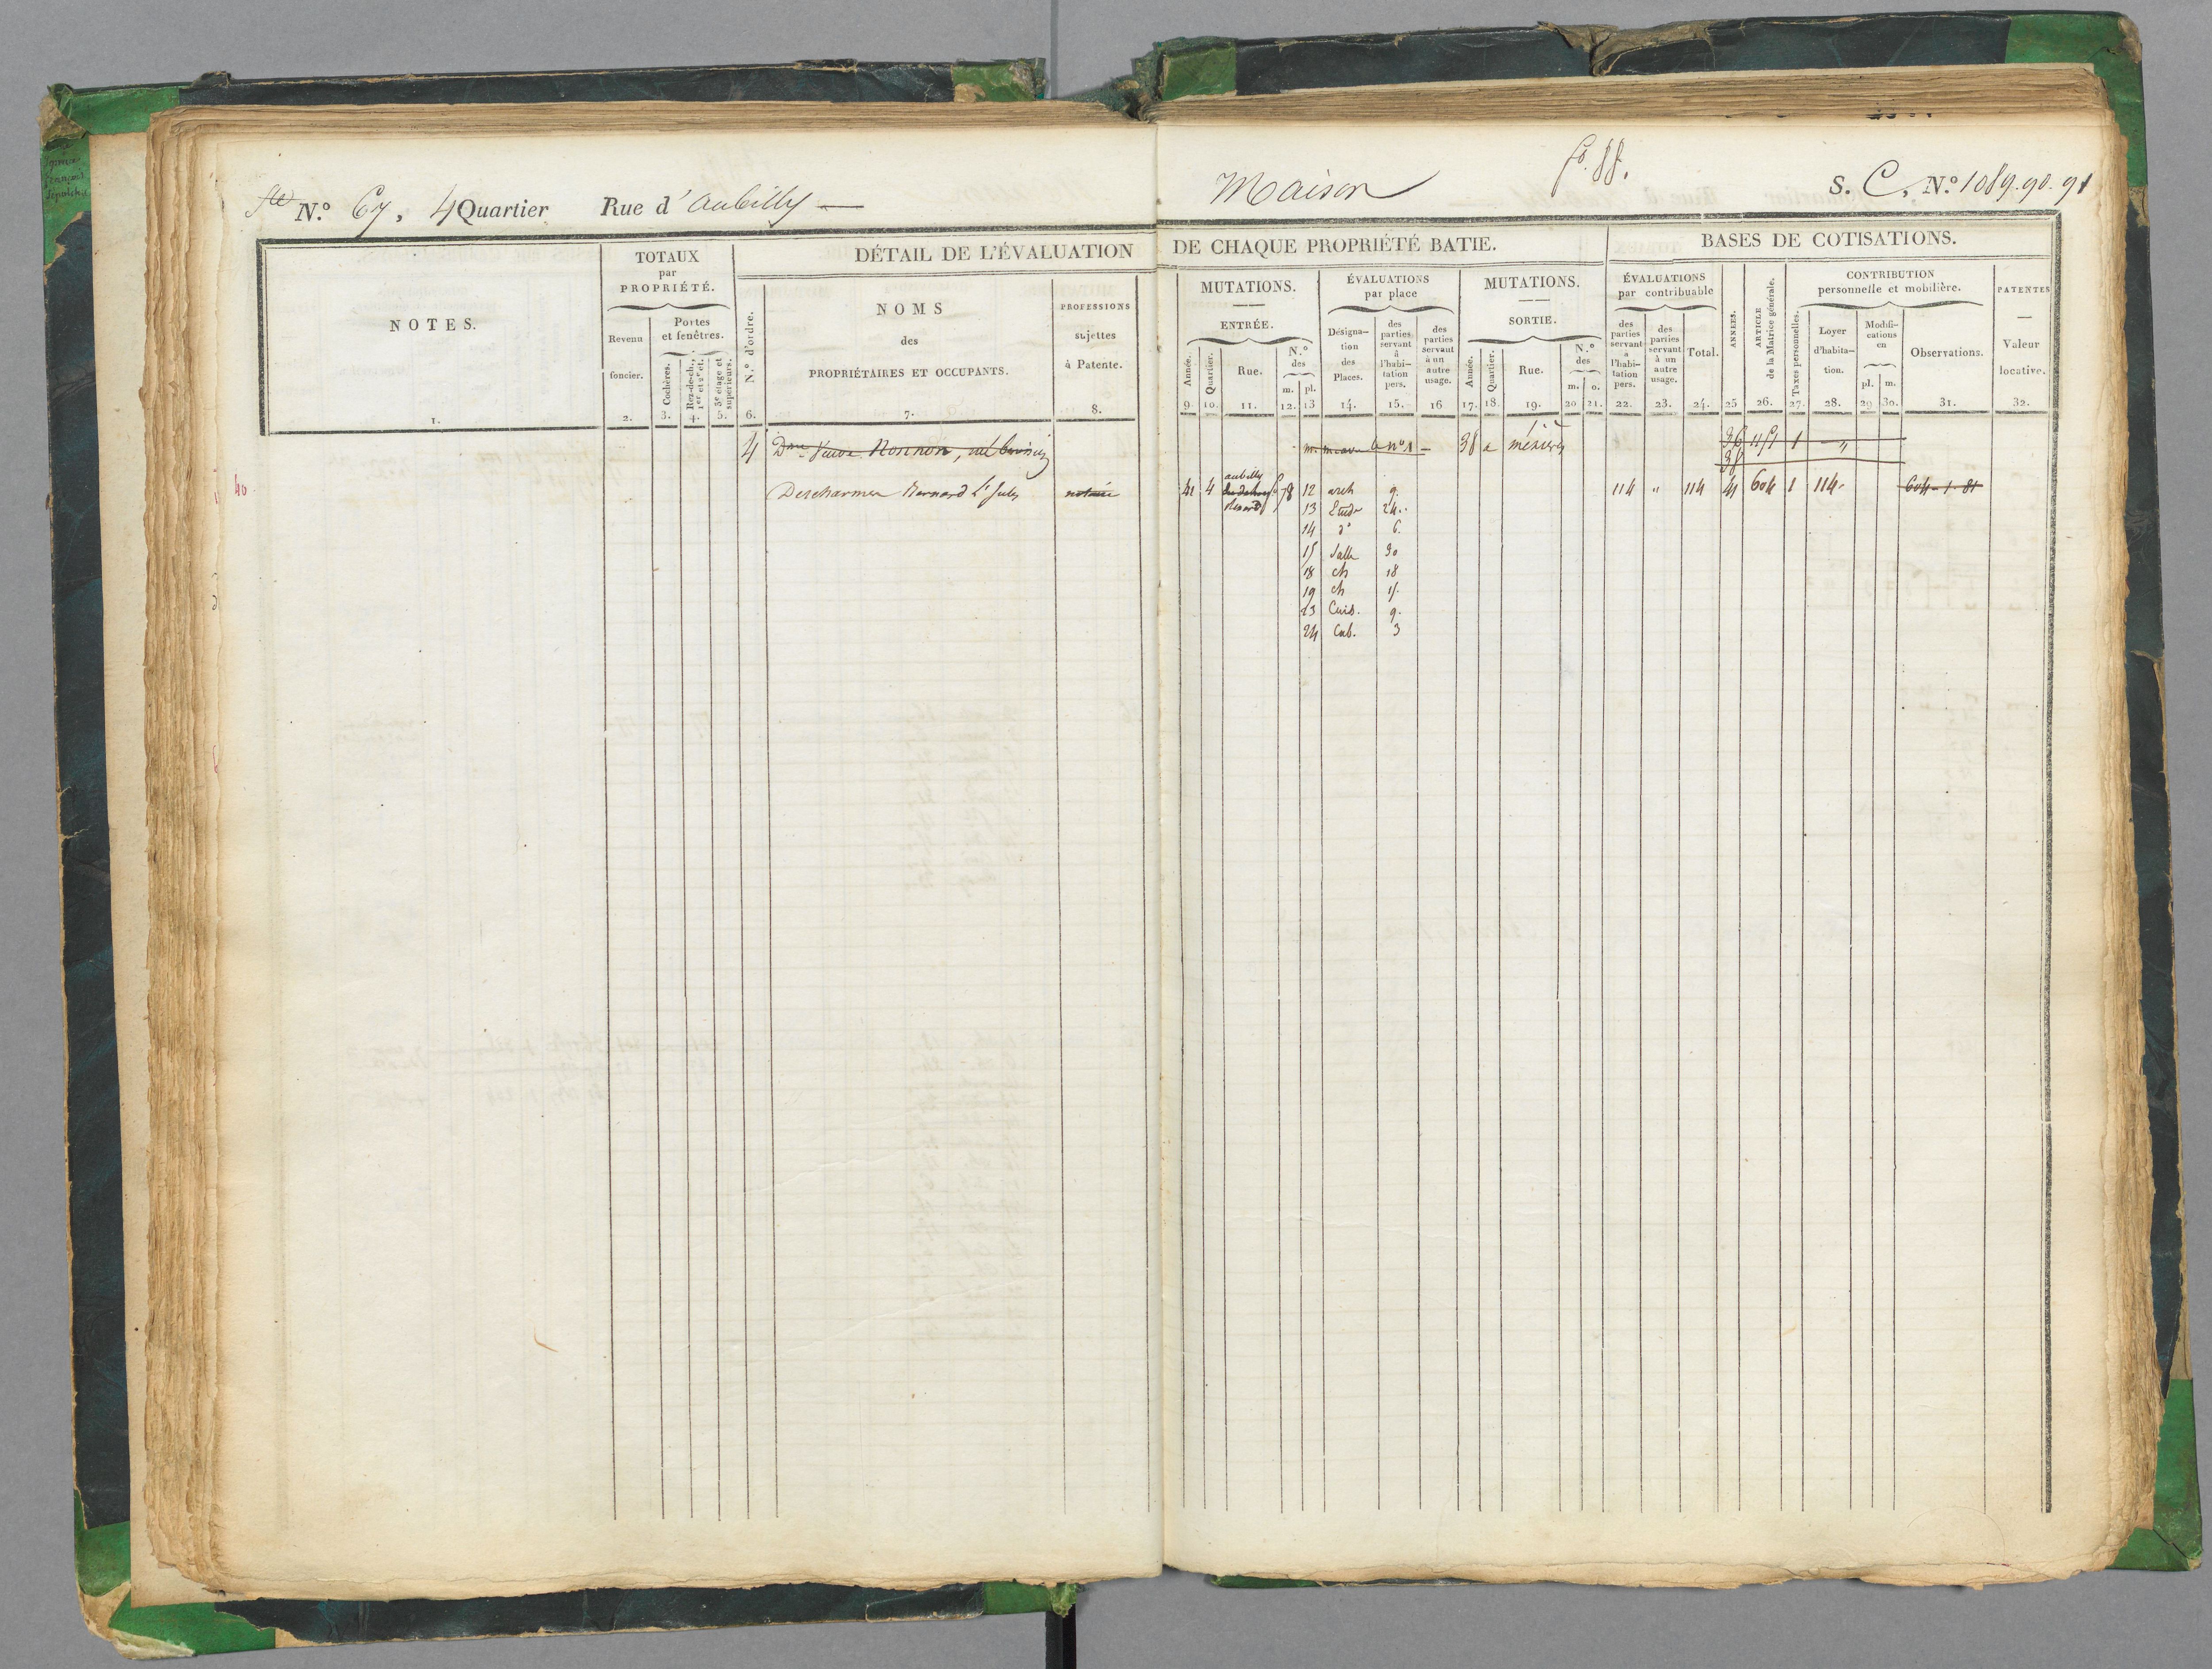 N.º 67, 4 Quartier Rue d'aubilly —
Maison
fº 88.
S. C, N.º 1089.90.91
DÉTAIL DE L'ÉVALUATION DE CHAQUE PROPRIÉTÉ BATIE.
BASES DE COTISATIONS.
NOTES.
1.
TOTAUX
par
PROPRIÉTÉ.
Revenu
foncier.
2.
Portes
et fenêtres.
Cochères.
3.
Rez-de-ch.,
1er et 2e ét.
4.
3e étage et
supérieurs.
5.
N.º d'ordre.
6.
NOMS
des
PROPRIÉTAIRES ET OCCUPANTS.
7.
PROFESSIONS
sujettes
à Patente.
8.
MUTATIONS.
ENTRÉE.
Année.
9.
Quartier.
10.
Rue.
11.
N.º
des
m.
12.
pl.
13
ÉVALUATIONS
par place
Désigna-
tion
des
Places.
14.
des
parties
servant
à
l'habi-
tation
pers.
15.
des
parties
servant
à un
autre
usage.
16
MUTATIONS.
SORTIE.
Année.
17.
Quartier.
18.
Rue.
19.
N.º
des
m.
20
o.
21.
ÉVALUATIONS
par contribuable
des
parties
servant
à
l'habi-
tation
pers.
22.
des
parties
servant
à un
autre
usage.
23.
Total.
24.
ANNÉES.
25
ARTICLE
de la Matrice générale.
26.
CONTRIBUTION
personnelle et mobilière.
Taxes personnelles.
27.
Loyer
d'habita-
tion.
28.
Modifi-
cations
en
pl.
29
m.
30.
Observations.
31.
PATENTES
Valeur
locative.
32.
4 Dme Veuve Nonnon, née
nº 1 — 38 mézières
36 1
38
40.
Descharmes Bernard Lt Jules notaire
41 4 aubilly 78 12 arch 9.
114 " 114 41 604 1 114. 604-1-81
13 Etude 24..
14 dº 6.
15 Salle 30
18 ch 18
19 ch 15.
23 Cuis. 9.
24 Cab. 3